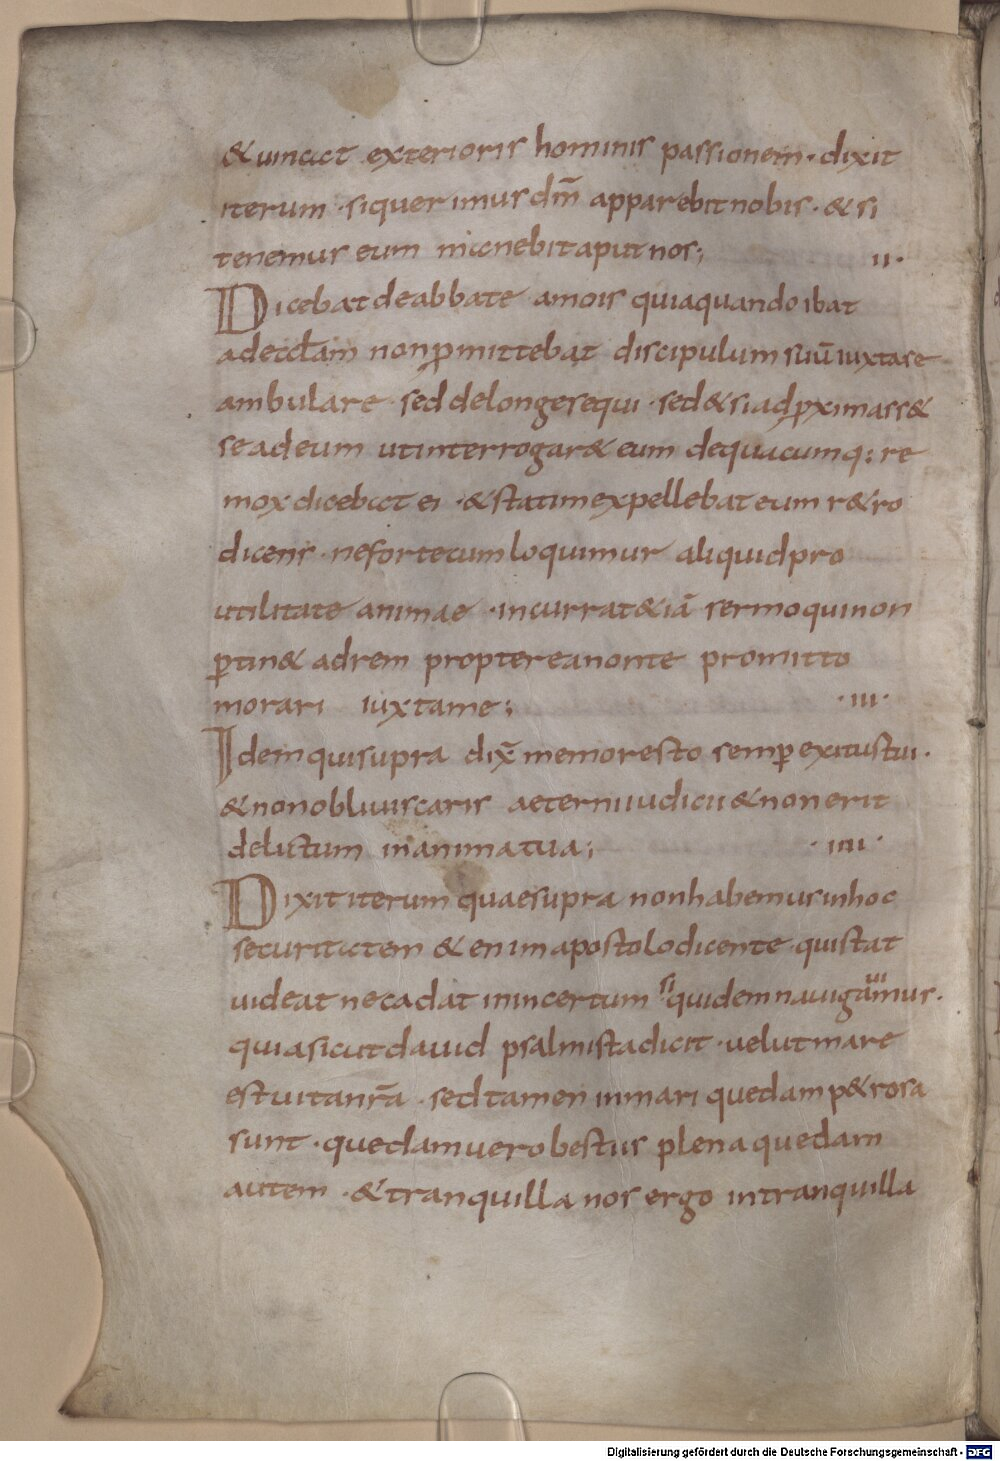 & uincit exterioris hominis passionem · dixit
iterum · si querimus dm̄ apparebit nobis · & si
tenemur eum manebit aput nos; ii·
Dicebat de abbate amois quia quando ibat
ad eccl̄am non p̄mittebat discipulum suū iuxta se
ambulare · sed de longe sequi · sed & si adp̱ximass&
se ad eum ut interrogar& eum de quacumq; re
mox dicebat ei · & statim expellebat eum r&ro
dicens · ne forte cum loquimur aliquid pro
utilitate animae · incurrat & iā sermo qui non
ꝑtin& ad rem propterea non te promitto
morari iuxta me; ·iii·
Idem qui supra dix̄ memor esto semꝑ exitus tui ·
& non obliuiscaris aeterni iudicii & non erit
delictum in anima tua; ·iiii·
Dixit iterum quae supra non habemus in hoc
securitatem & enim apostolo dicente · qui stat
uideat ne cadat in incertum si quidem nauigamus ·
quia sicut dauid psalmista dicit · uelut mare
est uita nr̄a · sed tamen in mari quedam p&rosa
sunt · quedam uero bestiis plena quedam
autem · & tranquilla nos ergo in tranquilla
Digitalisierung gefördert durch die Deutsche Forschungsgemeinschaft - DFG